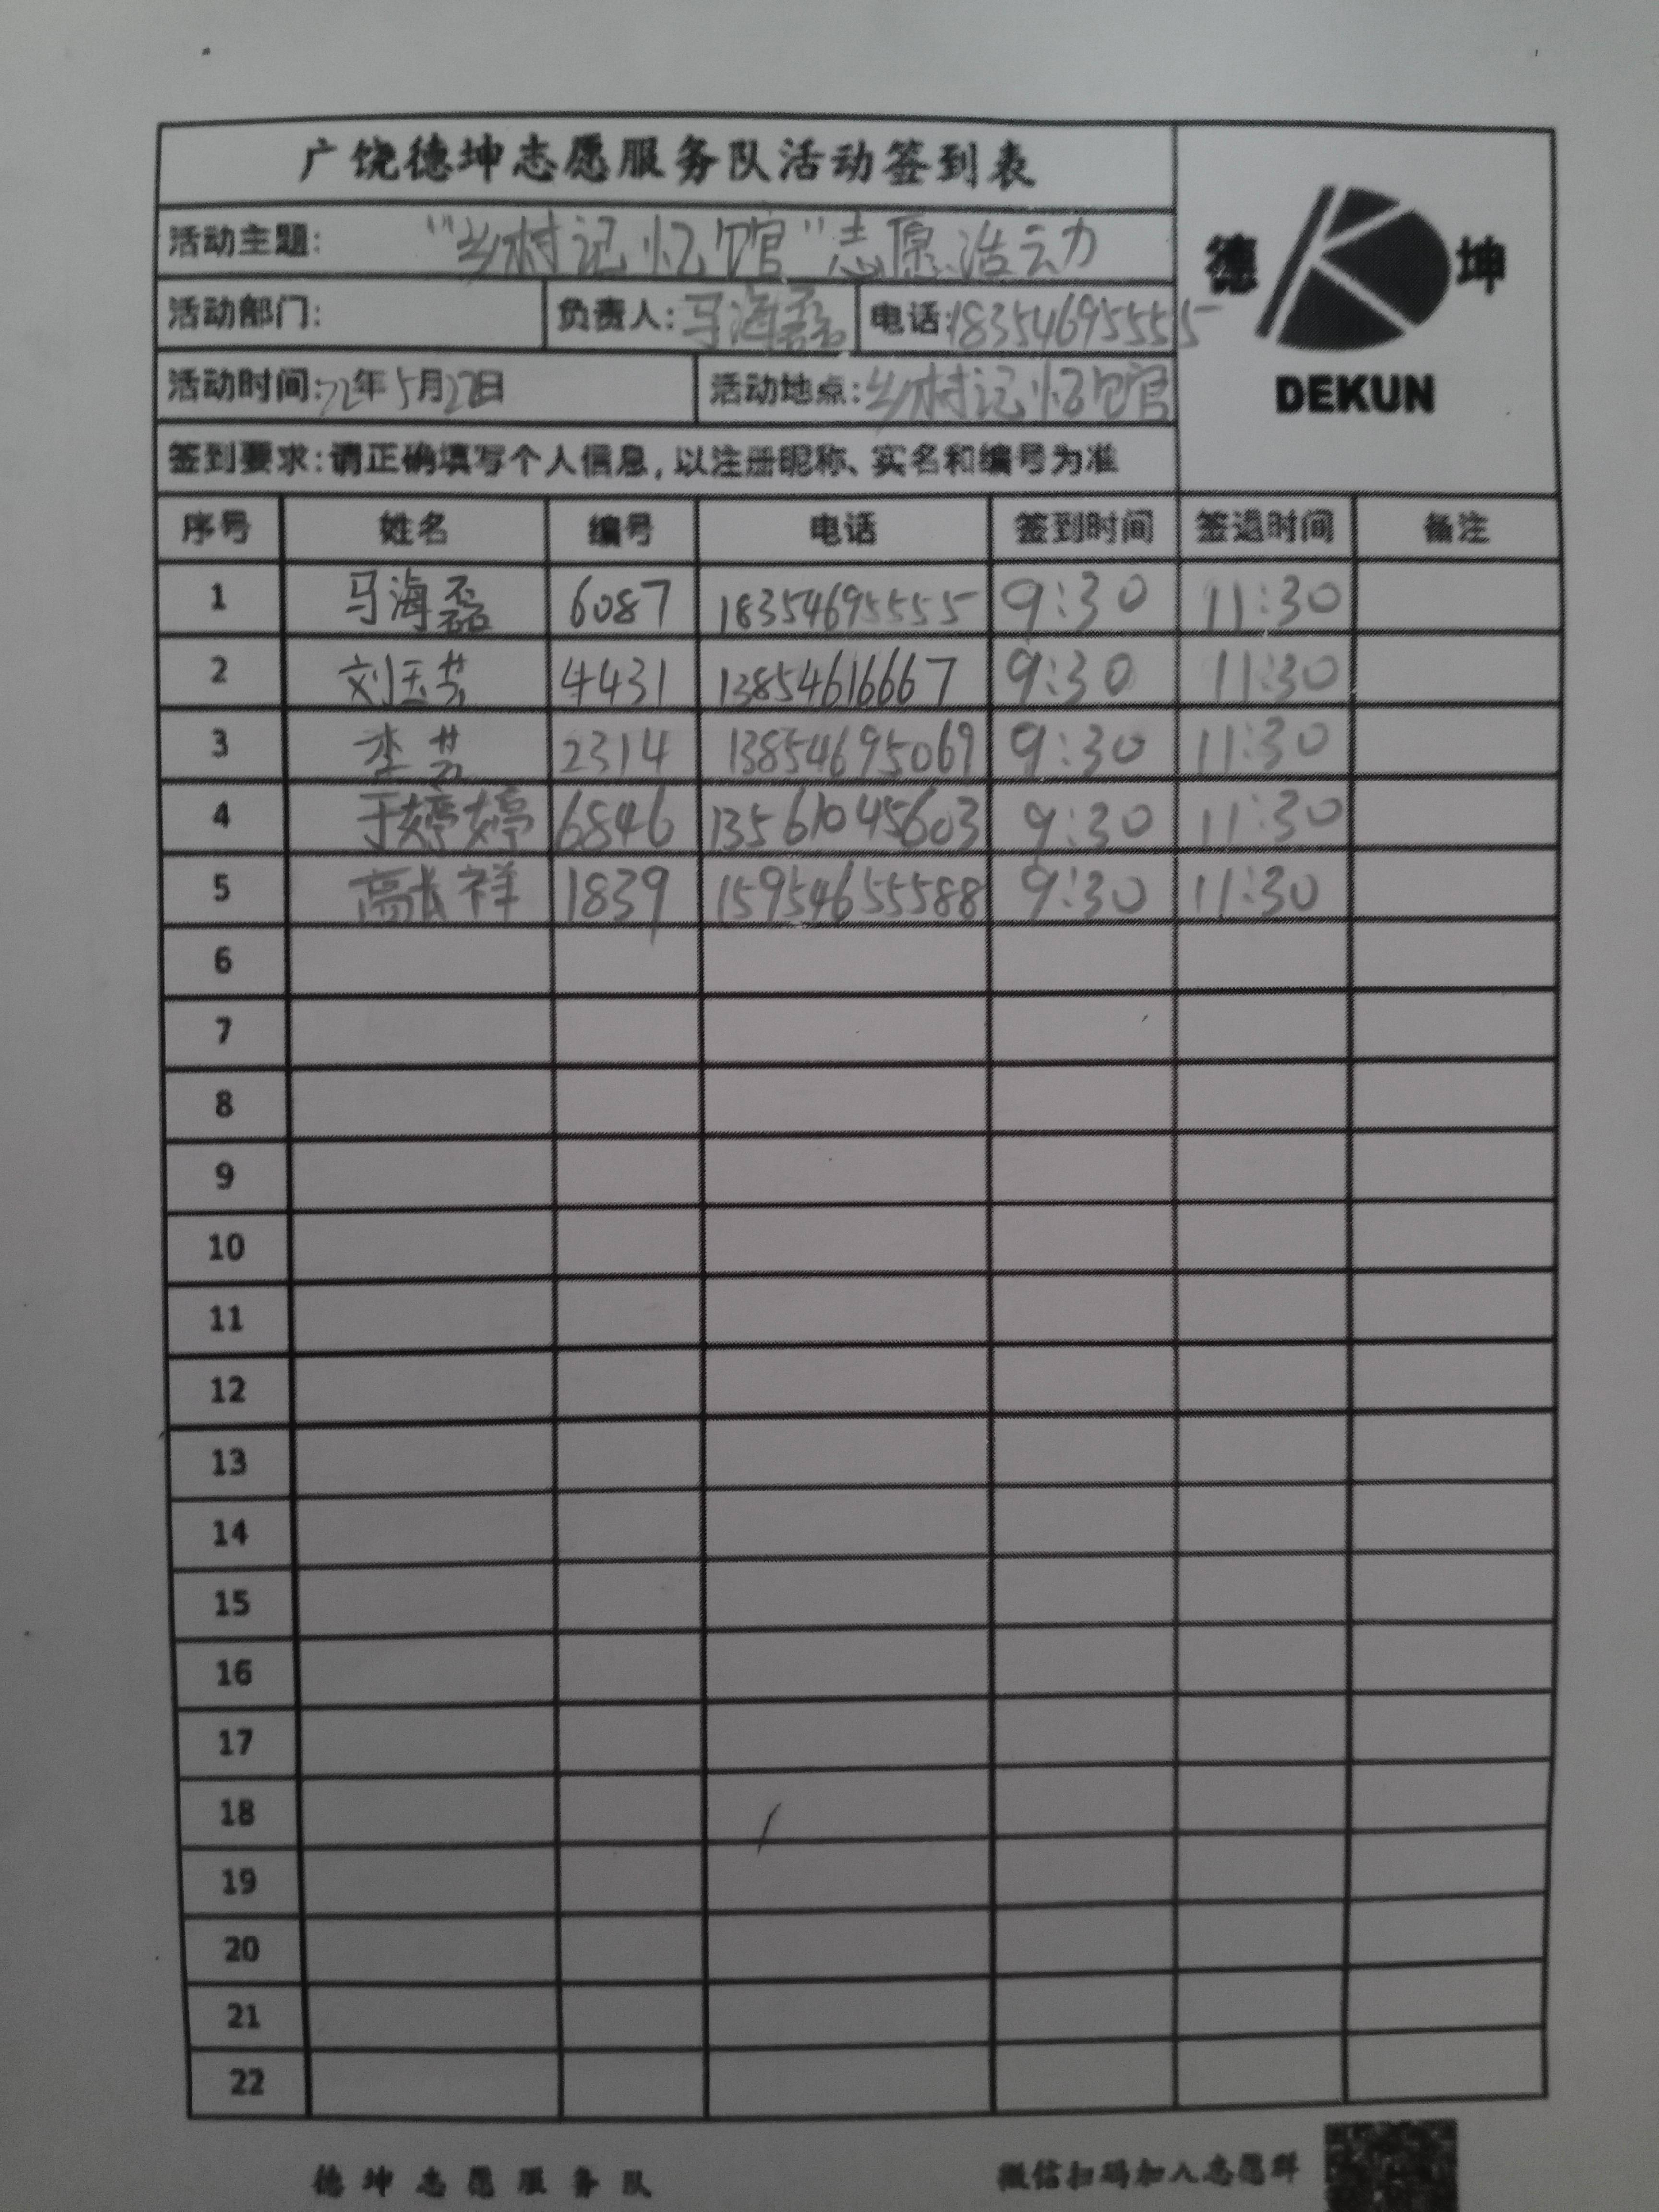 广饶德坤志愿服务队活动签到表
活动主题: "乡村记忆馆"志愿活动
德 坤
DEKUN
活动部门: 负责人: 马海磊 电话: 18354695555
活动时间: 22年5月22日 活动地点: 乡村记忆馆
签到要求: 请正确填写个人信息, 以注册昵称、实名和编号为准
序号 姓名 编号 电话 签到时间 签退时间 备注
1 马海磊 6087 18354695555 9:30 11:30
2 刘玉芳 4431 13854616667 9:30 11:30
3 李芳 2314 13854695069 9:30 11:30
4 于婷婷 6846 13561045603 9:30 11:30
5 高长祥 1839 15954655588 9:30 11:30
6
7
8
9
10
11
12
13
14
15
16
17
18
19
20
21
22
德坤志愿服务队 微信扫码加入志愿群